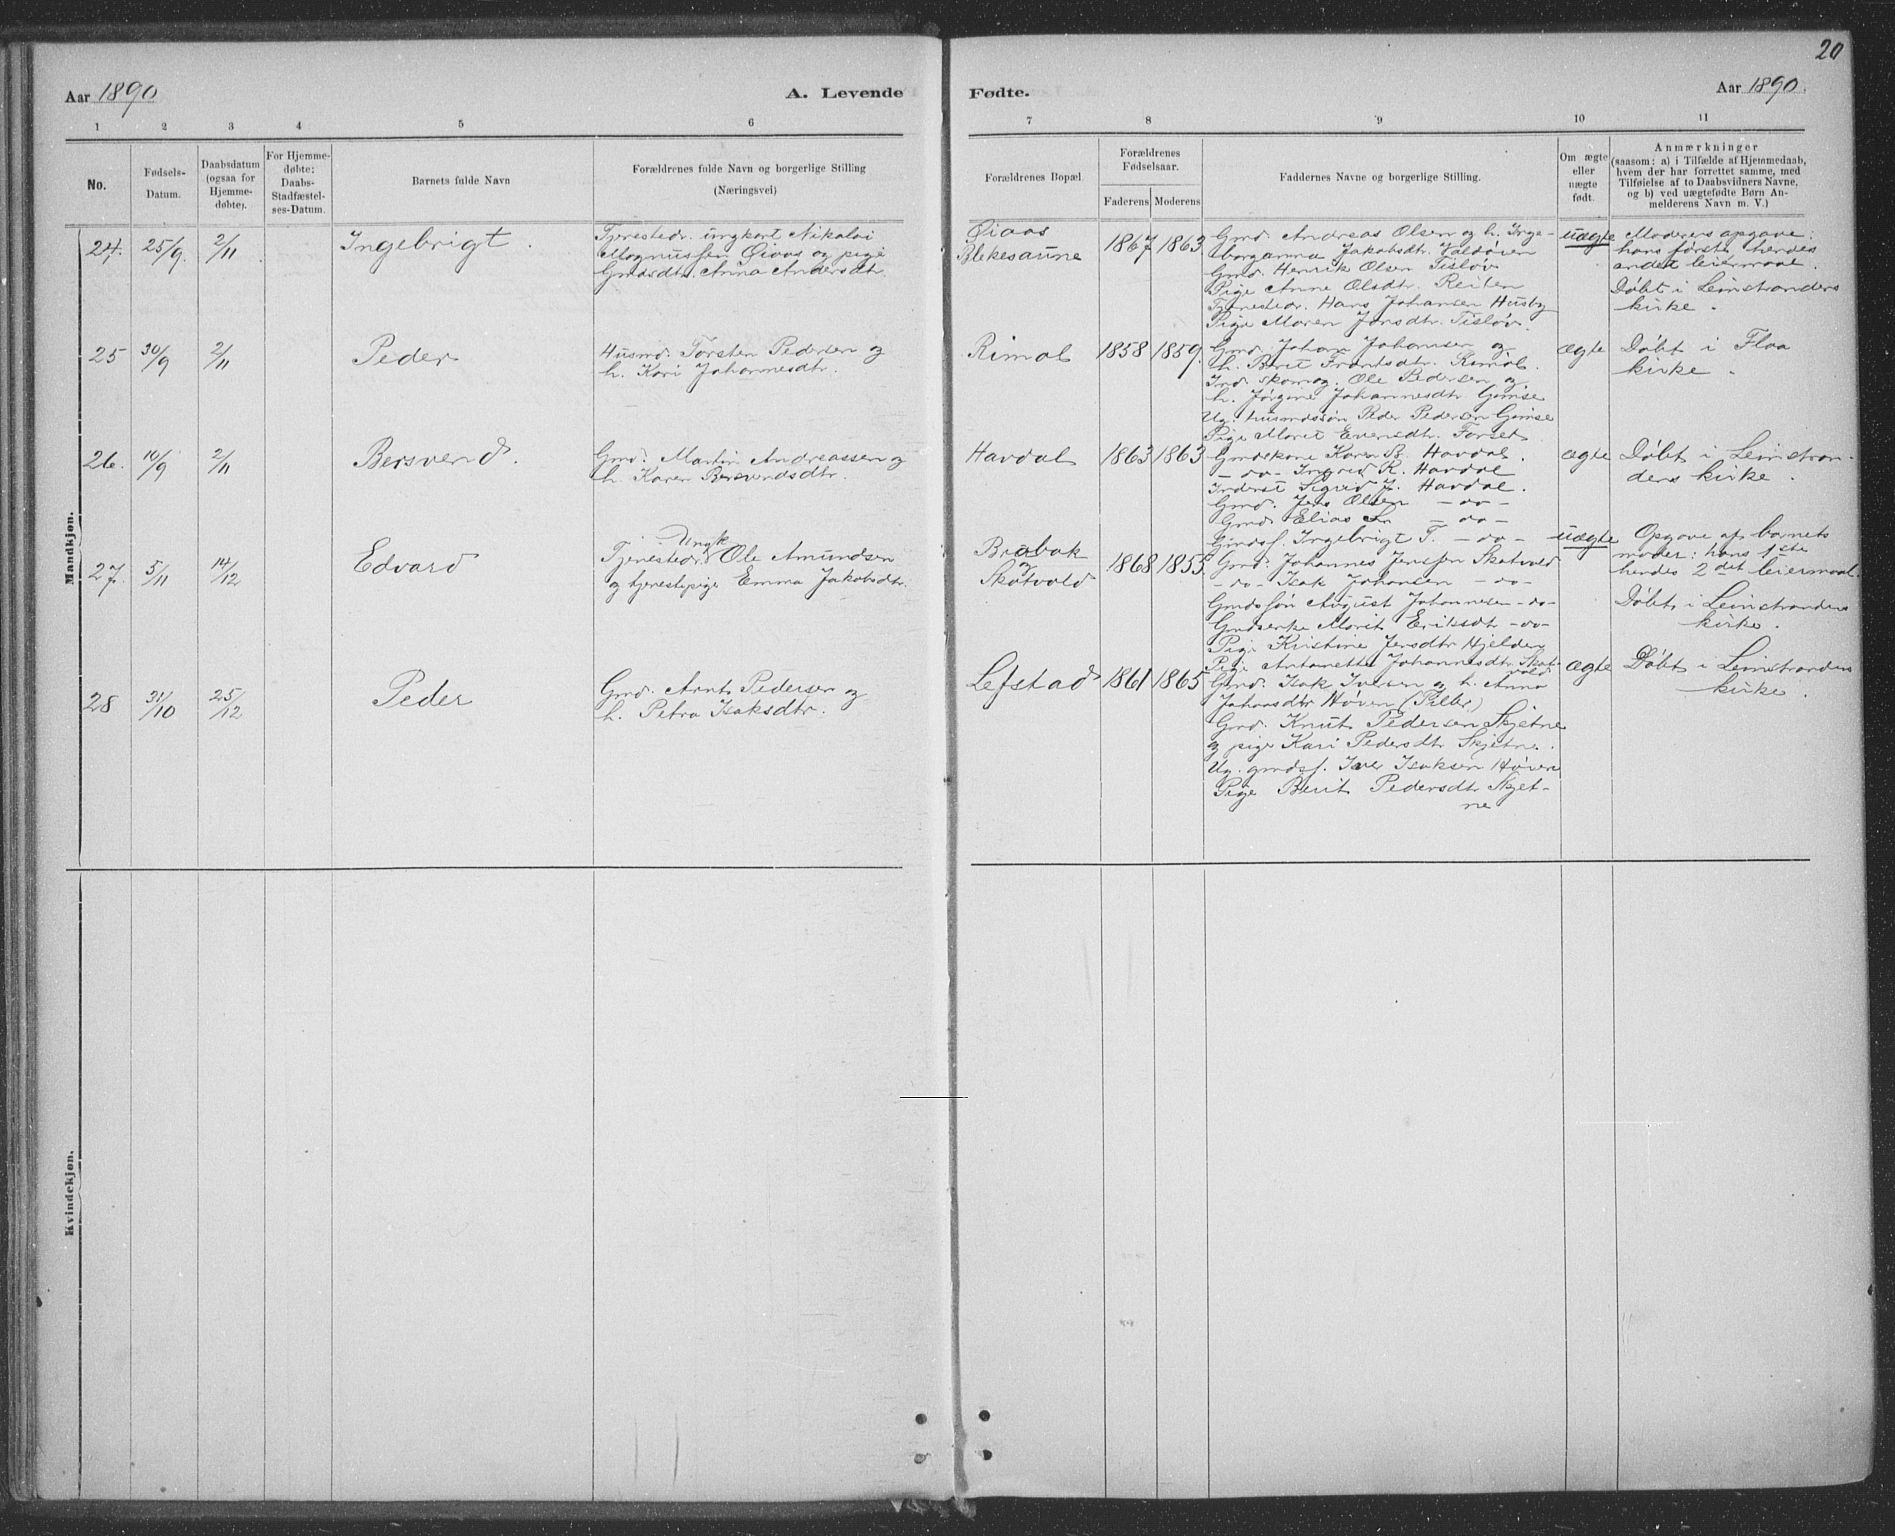 20
Aar 1890
A. Levende
Fødte.
Aar 1890.
1 2 3 4 5 6 7 8 9 10 11
No.
Fødsels-
Datum.
Daabsdatum
(ogsaa for
Hjemme-
døbte).
For Hjemme-
døbte:
Daabs-
Stadfæstel-
ses-Datum.
Barnets fulde Navn
Forældrenes fulde Navn og borgerlige Stilling
(Næringsvei)
Forældrenes Bopæl.
Forældrenes
Fødselsaar.
Faderens Moderens
Faddernes Navne og borgerlige Stilling.
Om ægte
eller
uægte
født.
Anmærkninger
(saasom: a) i Tilfælde af Hjemmedaab,
hvem der har forrettet samme, med
Tilføielse af to Daabsvidners Navne,
og b) ved uægtefødte Børn An-
melderens Navn m. V.)
Mandkjøn.
24. 25/9. 2/11 Ingebrigt.
Tjenestedr. ungkart Nikolai
Magnussen Øiaas og pige
Gmdsdtr. Anna Andersdtr.
Øiaas
Blekesaune
1867 1863
Gmd. Andreas Olsen og h. Inge-
borganna Jakobsdtr. Valdøien
Gmd. Henrik Olsen Tisløv
Pige Anne Olsdtr. Reiten
Tjenestedr. Hans Johansen Husby
Pige Maren Jonsdtr. Tisløv.
uægte
Moderens opgave:
hans første hendes
andet leiermaal.
Døbt i Leinstrandens
kirke.
25 30/9 2/11 Peder
Husmd. Torsten Pedersen og
h. Kari Johannesdtr.
Rimol 1858 1859.
Gmd. Johan Johansen og
h. Berit Frantsdtr. Rimol.
Ind. skomag. Ole Pedersen og
h. Jørgine Johannesdtr. Gimse
Ug. husmdssøn Peder Pedersen Gimse
Pige Marit Evensdtr. Forset.
ægte
Døbt i Flaa
kirke.
26. 10/9 2/11 Bersvend.
Gmd. Martin Andreassen og
h. Karen Bersvendsdtr.
Havdal 1863 1863
Gmdskone Karen B. Havdal.
— do — Ingrid R. Havdal
Inderst Sigrid J. Havdal.
Gmd. Jens Olsen — do —
Gmd. Elias — do —
Gmdsf. Ingebrigt F. — do —
ægte
Døbt i Leinstran-
dens kirke.
27. 5/11 14/12 Edvard
Ungk.
Tjenestedr. Ole Amundsen
og tjenestepige Emma Jakobsdtr.
Brubak
og
Skotvold
1868 1855
Gmd. Johannes Jenssen Skotvold
— do — Isak Johansen — do —
Gmdssøn August Johannesen — do —
Gmdsenke Marit Eriksdtr — do —
Pige Kristine Jensdtr Hjelden
Pige Antonette Johannesdtr. Skot-
vold
uægte
Opgave af barnets
moder: hans 1ste
hendes 2det leiermaal.
Døbt i Leinstrandens
kirke.
28 31/10 25/12 Peder
Gmd. Arnt Pedersen og
h. Petra Isaksdtr.
Lefstad 1861 1865
Gmd. Isak Iversen og h. Anna
Johansdtr Høven
Gmd. Knut Pedersen Skjetne
og pige Kari Pedersdtr Skjetne.
Ug. gmdsf. Iver Isaksen Høven
Pige Berit Pedersdtr Skjet-
ne
ægte
Døbt i Leinstrandens
kirke.
Kvindekjøn.